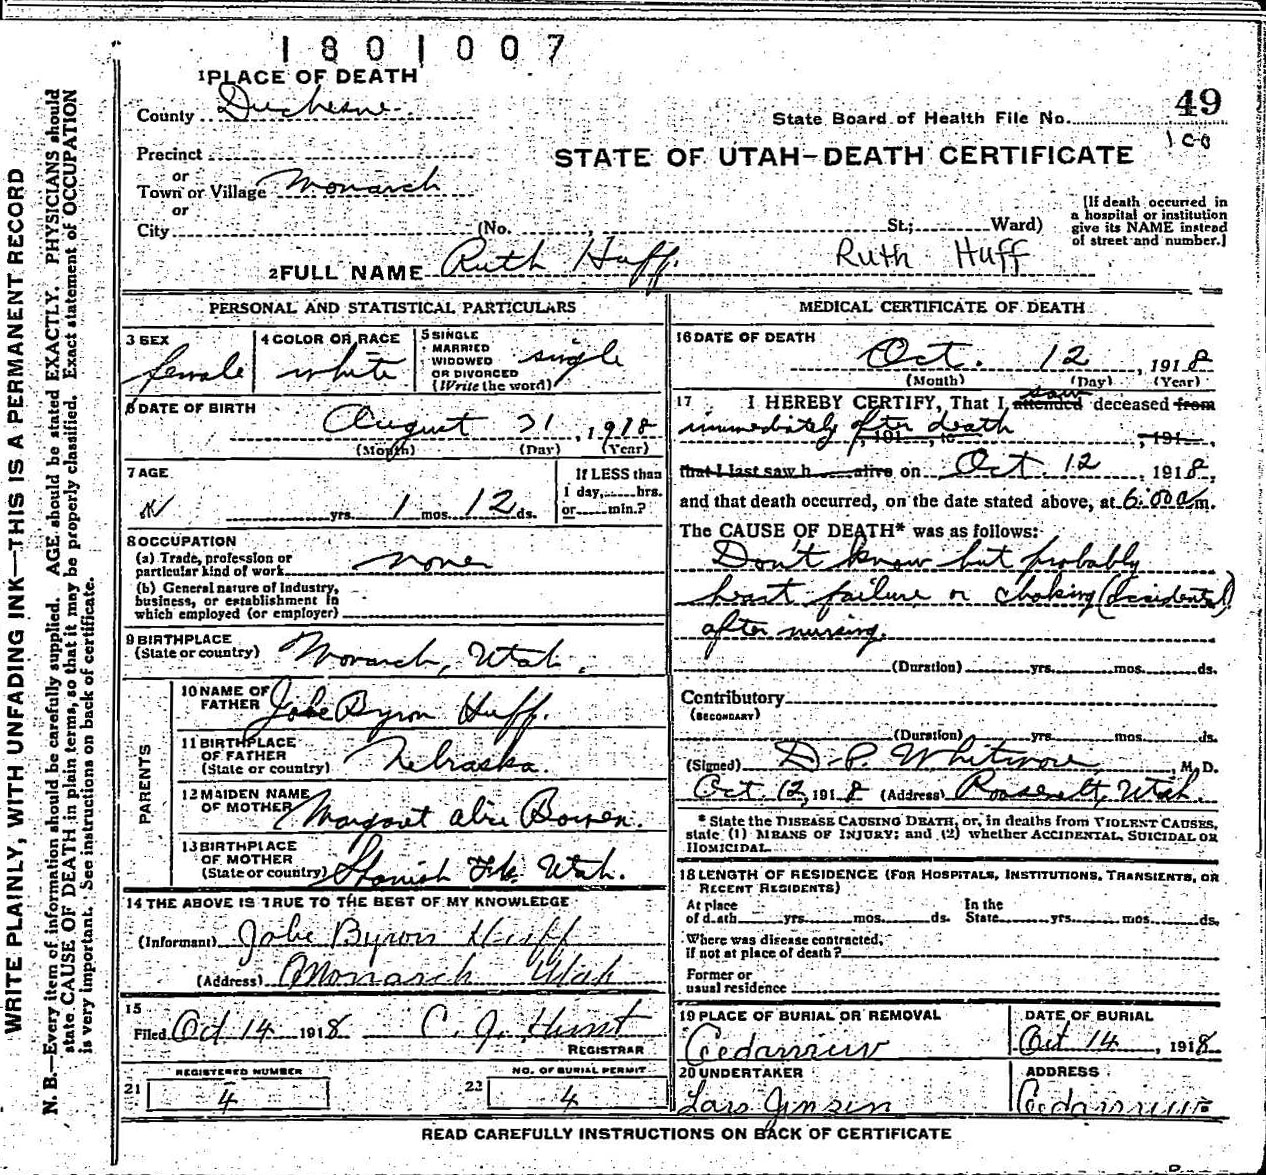 1801007
1 PLACE OF DEATH
County Duchesne
State Board of Health File No. 49
100
Precinct
or
Town or Village Monarch
or
City (No. , St.; Ward)
STATE OF UTAH-DEATH CERTIFICATE
[If death occurred in
a hospital or institution
give its NAME instead
of street and number.]
2 FULL NAME Ruth Huff. Ruth Huff
PERSONAL AND STATISTICAL PARTICULARS
3 SEX
female
4 COLOR OR RACE
white
5 SINGLE
MARRIED
WIDOWED
OR DIVORCED
(Write the word)
single
6 DATE OF BIRTH
August 31, 1918
(Month) (Day) (Year)
7 AGE
yrs. 1 mos. 12 ds.
If LESS than
1 day, hrs.
or min.?
8 OCCUPATION
(a) Trade, profession or
particular kind of work none
(b) General nature of industry,
business, or establishment in
which employed (or employer)
9 BIRTHPLACE
(State or country) Monarch, Utah.
PARENTS
10 NAME OF
FATHER Jobe Byron Huff.
11 BIRTHPLACE
OF FATHER
(State or country) Nebraska.
12 MAIDEN NAME
OF MOTHER Margaret Alice Bowen.
13 BIRTHPLACE
OF MOTHER
(State or country) Spanish Fk. Utah.
14 THE ABOVE IS TRUE TO THE BEST OF MY KNOWLEDGE
(Informant) Jobe Byron Huff
(Address) Monarch Utah
15
Filed Oct 14 1918 C. J. Hunt
REGISTRAR
REGISTERED NUMBER
21 4
NO. OF BURIAL PERMIT
22 4
MEDICAL CERTIFICATE OF DEATH
16 DATE OF DEATH
Oct. 12, 1918
(Month) (Day) (Year)
17 I HEREBY CERTIFY, That I attended saw deceased from
immediately after death , 191 , to , 191 ,
that I last saw h alive on Oct. 12, 1918,
and that death occurred, on the date stated above, at 6:00 a m.
The CAUSE OF DEATH* was as follows:
Don't know but probably
heart failure or choking (accidental)
after nursing.
(Duration) yrs. mos. ds.
Contributory
(SECONDARY)
(Duration) yrs. mos. ds.
(Signed) D. P. Whitmore, M. D.
Oct. 12, 1918 (Address) Roosevelt, Utah.
* State the DISEASE CAUSING DEATH, or, in deaths from VIOLENT CAUSES,
state (1) MEANS OF INJURY; and (2) whether ACCIDENTAL, SUICIDAL OR
HOMICIDAL.
18 LENGTH OF RESIDENCE (FOR HOSPITALS, INSTITUTIONS, TRANSIENTS, OR
RECENT RESIDENTS)
At place
of death yrs. mos. ds.
In the
State yrs. mos. ds.
Where was disease contracted,
if not at place of death?
Former or
usual residence
19 PLACE OF BURIAL OR REMOVAL
Cedarview
DATE OF BURIAL
Oct 14, 1918
20 UNDERTAKER
Lars Jensen
ADDRESS
Cedarview
READ CAREFULLY INSTRUCTIONS ON BACK OF CERTIFICATE
WRITE PLAINLY, WITH UNFADING INK—THIS IS A PERMANENT RECORD
N. B.—Every item of information should be carefully supplied. AGE should be stated EXACTLY. PHYSICIANS should
state CAUSE OF DEATH in plain terms, so that it may be properly classified. Exact statement of OCCUPATION
is very important. See instructions on back of certificate.